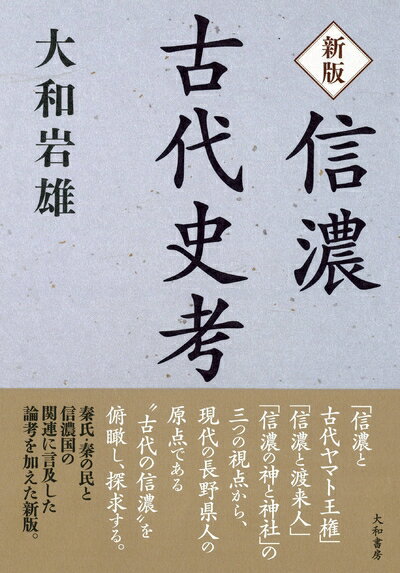 新版
信濃
古代史考
大和岩雄
「信濃と
古代ヤマト王権」
「信濃と渡来人」
「信濃の神と神社」の
三つの視点から、
現代の長野県人の
原点である
〝古代の信濃〟を
俯瞰し、探求する。
秦氏・秦の民と
信濃国の
関連に言及した
論考を加えた新版。
大和書房